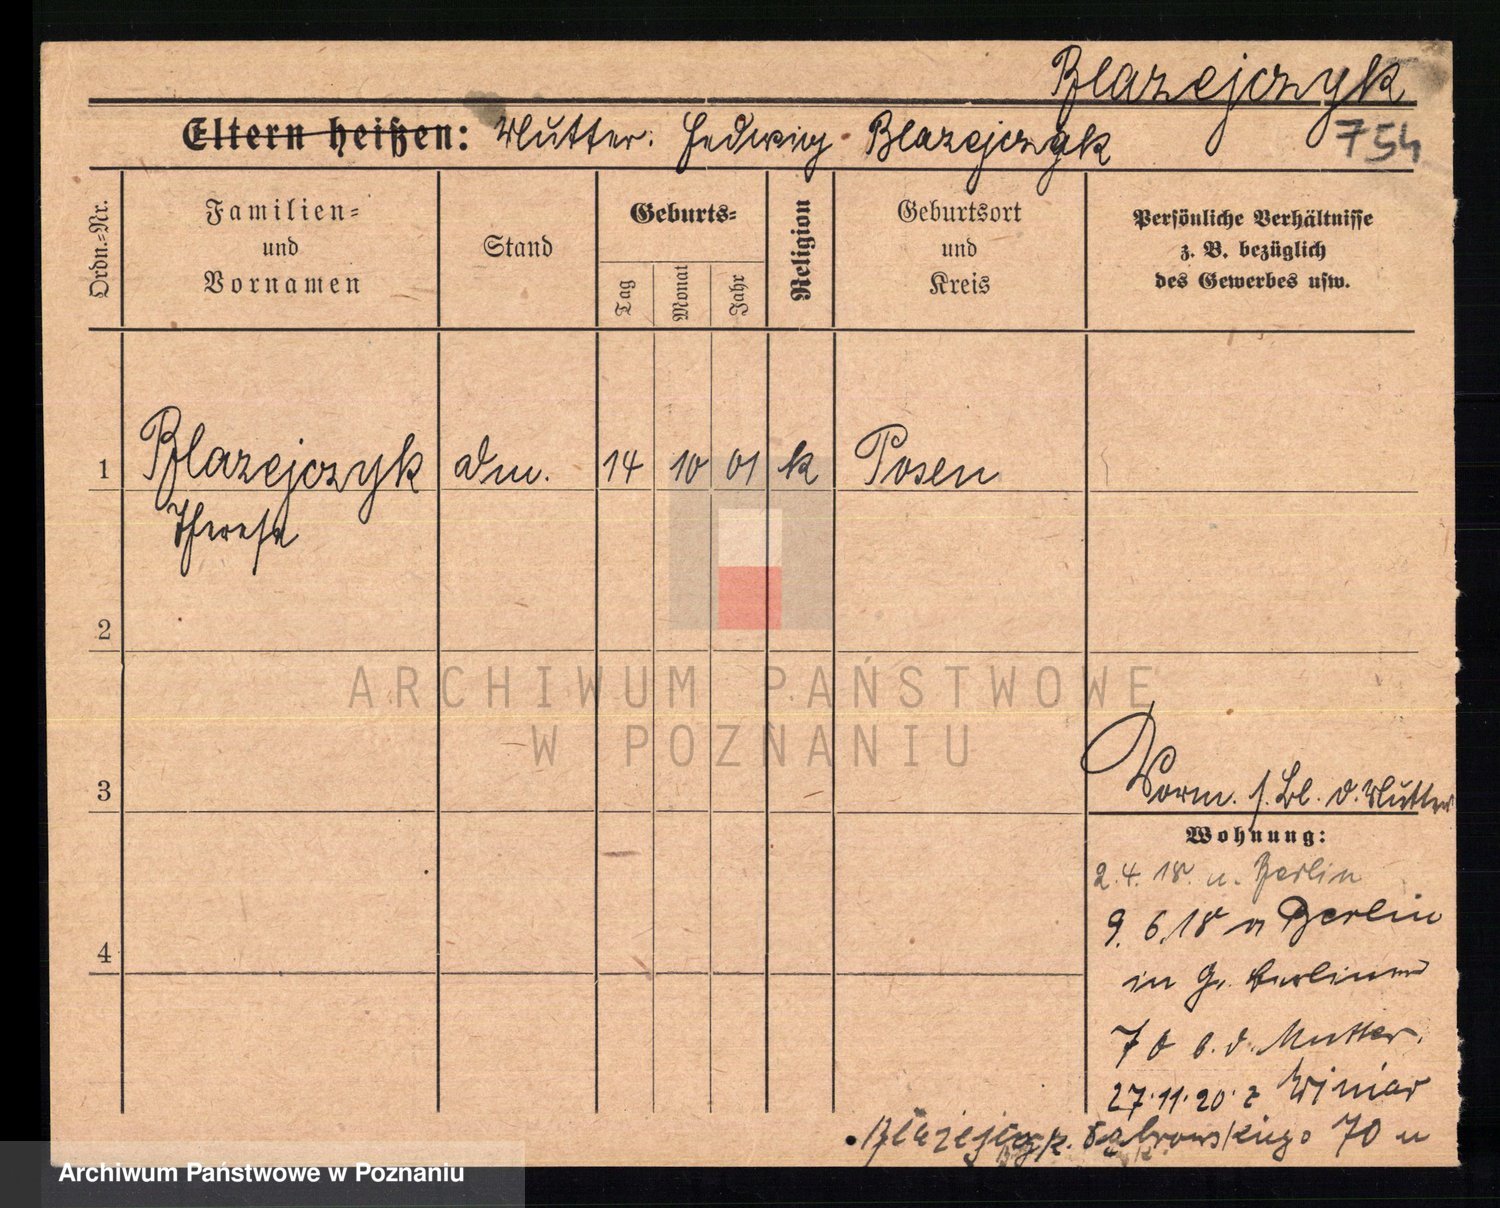 Blazejczyk
754
Eltern heißen: Mutter: Hedwig Blazejczyk
Ordn.-Nr.
Familien-
und
Vornamen
Stand
Geburts-
Tag
Monat
Jahr
Religion
Geburtsort
und
Kreis
Persönliche Verhältnisse
z. B. bezüglich
des Gewerbes usw.
1 Blazejczyk 14 10 01 k Posen
Therese
2
ARCHIWUM PAŃSTWOWE
W POZNANIU
3
Vorm. s. Bl. d. Mutter
Wohnung:
2.4.18. n. Berlin
9.6.18 n Berlin
in
4
70 b. d. Mutter.
27.11.20. z Winiar
70
Archiwum Państwowe w Poznaniu